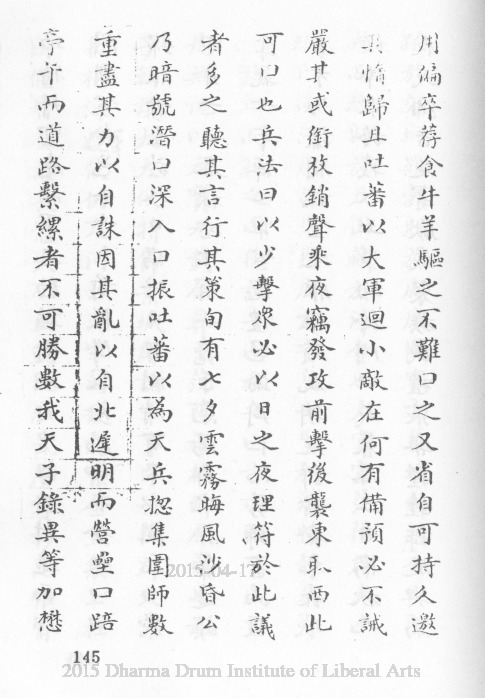 用偏卒荐食牛羊驅之不難口之又省自可持久邀
其惰歸且吐蕃以大軍迴小敵在何有備預必不誡
嚴其或銜枚銷聲乘夜竊發攻前擊後襲東取西此
可口也兵法曰以少擊眾必以日之夜理符於此議
者多之聽其言行其策旬有七夕雲霧晦風沙昏公
乃暗號潛口深入口振吐蕃以為天兵揔集圍師數
重盡其力以自誅因其亂以自北遲明而營壘口踣
亭午而道路繫縲者不可勝數我天子錄異等加懋
145
2015-04-17
2015 Dharma Drum Institute of Liberal Arts